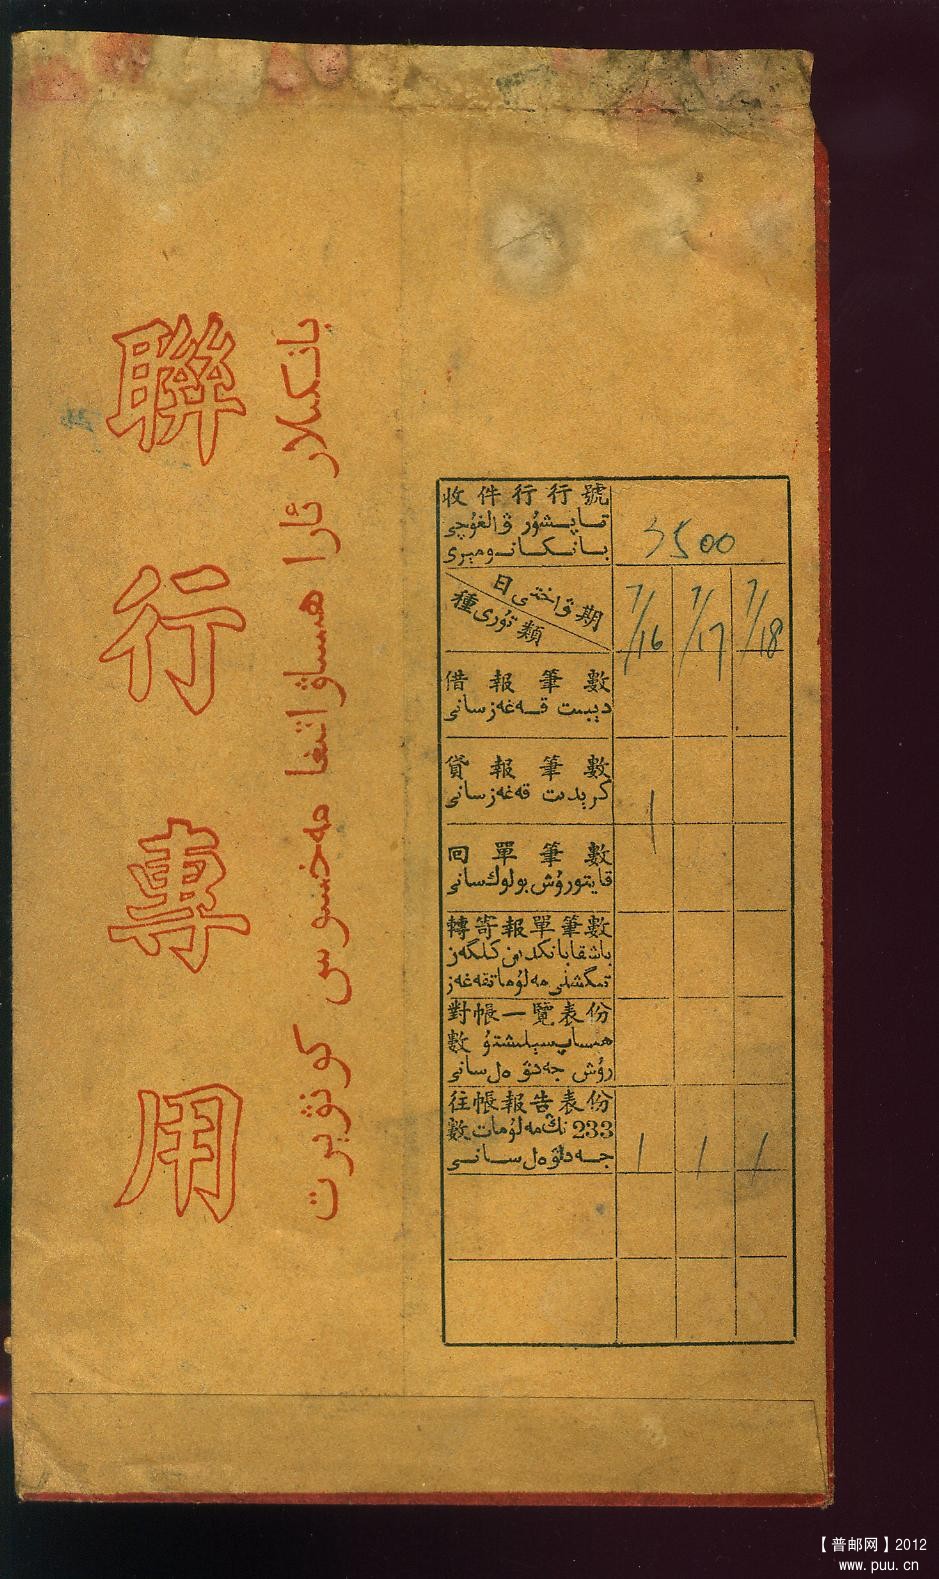 聯行專用
بانكىلار ئارا ھىساۋاتىغا مەخسۇس كونۋېرت
收件行行號
تاپشۇرۇۋالغۇچى
بانكا نومېرى
3500
日期
ۋاختى
種類
تۈرى
7/16 7/17 7/18
借報筆數
دېبىت قەغەز سانى
貸報筆數
كرېدىت قەغەز سانى
1
回單筆數
قايتۇرۇش بولوك سانى
轉寄報單筆數
باشقا بانكىدىن كەلگەن
對帳一覽表份
數 ھىساپ سېلىشتۇ
رۇش جەدۋەل سانى
往帳報告表份
數 233 نىڭ مەلۇمات
جەدۋەل سانى
1 1 1
【普邮网】2012
www.puu.cn